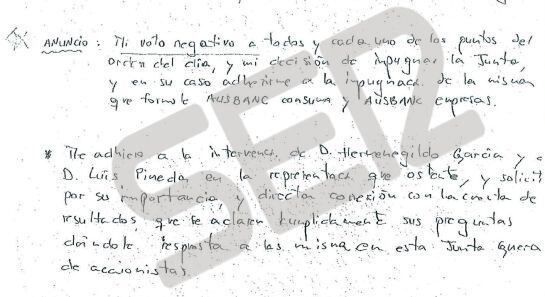 * ANUNCIO: Mi voto negativo a todos y cada uno de los puntos del
orden del día, y mi decisión de impugnar la Junta,
y en su caso adherirme a la impugnac. de la misma
que formule AUSBANC consumo y AUSBANC empresas.
* Me adhiero a la intervenc. de D. Hermenegildo García y a
D. Luis Pineda, en la representac. que ostente, y solicit
por su importancia y directa conexión con la cuenta de
resultados, que se aclaren cumplidamente sus preguntas
dándole respuesta a las misma en esta Junta General
de accionistas
SER